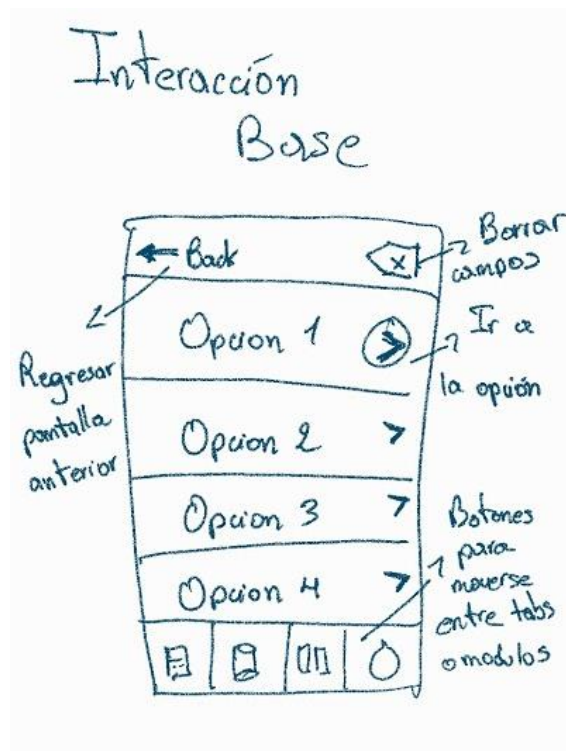 Interacción
Base
Back
Borrar
campos
Opcion 1
Ir a
la opción
Regresar
pantalla
anterior
Opcion 2
Opcion 3
Opcion 4
Botones
para
moverse
entre tabs
o modulos